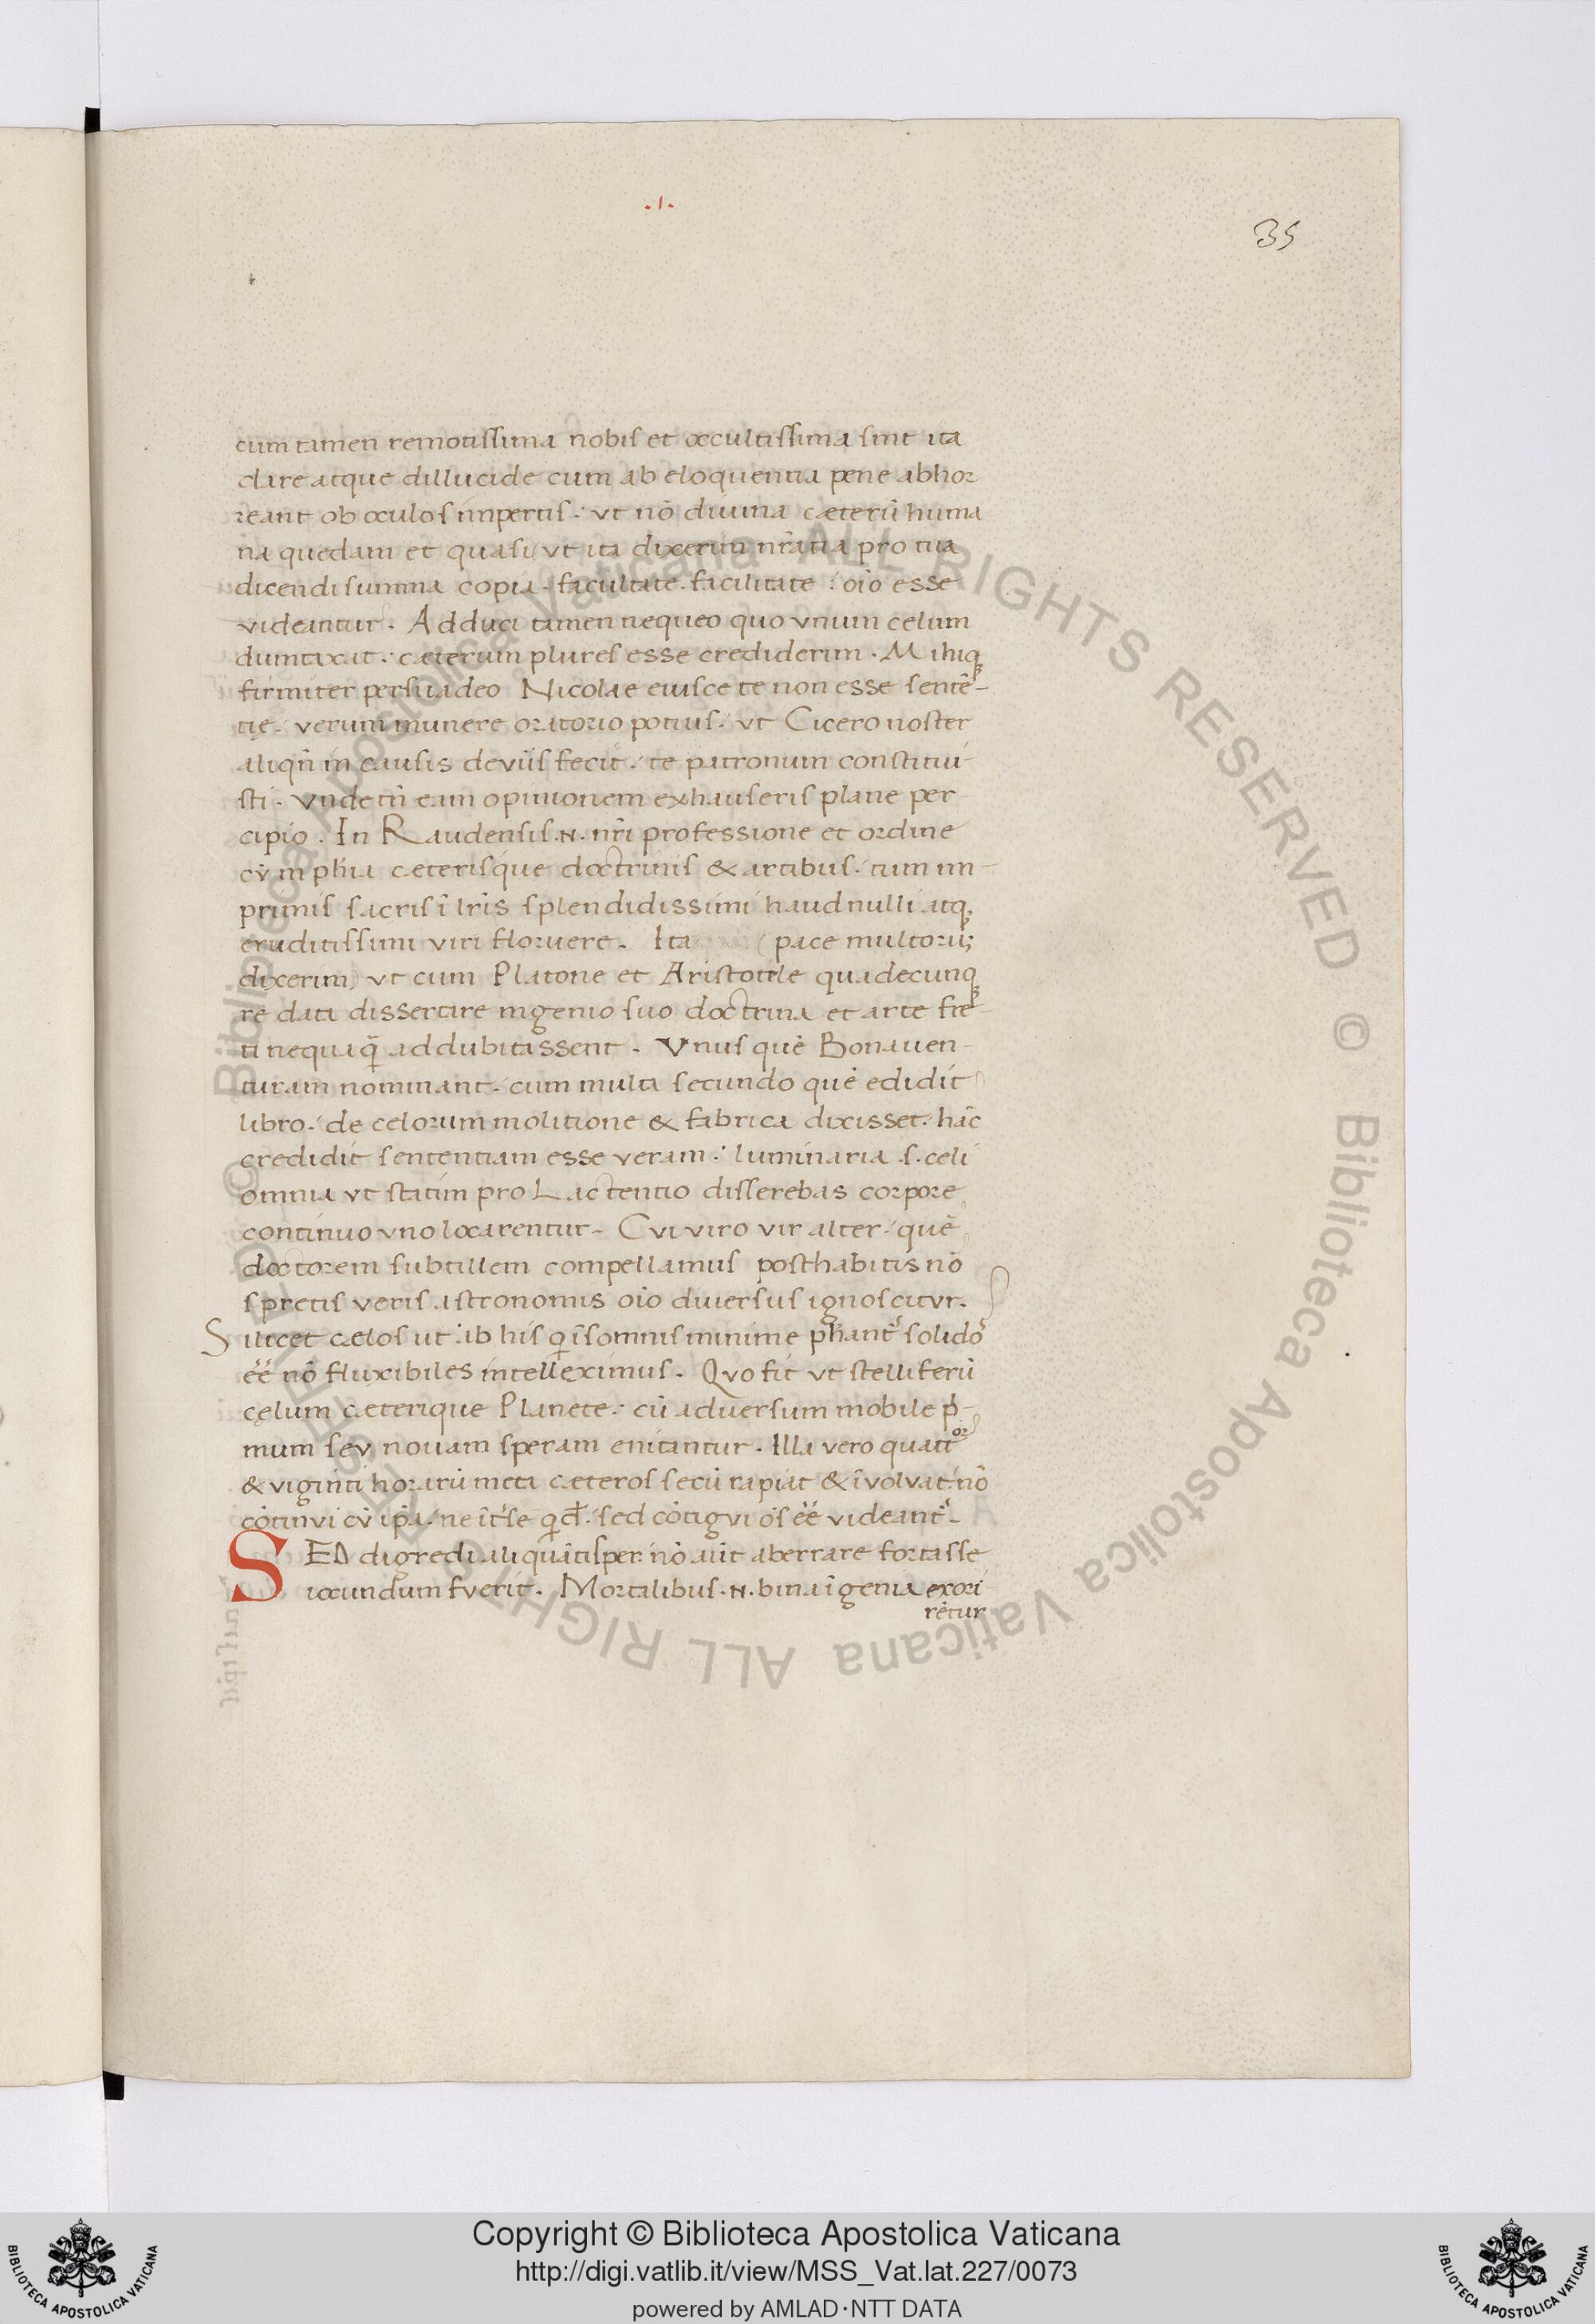 .I.
35
cum tamen remotissima nobis et occultissima sint ita
clare atque dillucide cum ab eloquentia pene abhor
reant ob oculos impertis: vt nō diuina cæterū huma
na quedam et quasi vt ita dixerim nr̄atia pro tua
dicendi summa copia. facultate. facilitate: oīo esse
videantur. Adduci tamen nequeo quo vnum celum
dumtaxat: cæterum plures esse crediderim. Mihiq̨
firmiter persuadeo Nicolae eiusce te non esse sentē-
tię. verum munere oratorio potius. vt Cicero noster
aliqn̄ in causis deviis fecit. te patronum constitui-
sti. Vnde tn̄ eam opinionem exhauseris plane per-
cipio. In Raudensis .N. nr̄i professione et ordine
cv̄ in phīa ceterisque doctrinis & artibus. tum im-
primis sacris ī lr̄is splendidissimi haud nulli atq̨
eruditissimi viri floruere. Ita (pace multorū
dixerim) vt cum Platone et Aristotele quadecunq̨
re data dissertare ingenio suo doctrina et arte fre-
ti nequaq̄ addubitassent. Vnus quē Bonauen-
turam nominant. cum multa secundo quē edidit
libro. de celorum molitione & fabrica dixisset. hāc
credidit sententiam esse veram: luminaria .s. celi
omnia vt statim pro Lactentio disserebas corpore
continuo vno locarentur. Cvi viro vir alter. quē
doctorem subtillem compellamus posthabitis nō
spretis veris astronomis oīo diuersus ignoscitvr.
Silicet cælos ut ab his q̄ īsomnis minime phant᷑ solido᷑
ēē nō fluxibiles intelleximus. Qvo fit vt stelliferū
cęlum cæterique Planete: cū aduersum mobile p̄-
mum sev nouam speram enitantur. Illa vero quatt᷑or
& viginti horarū meta cæteros secū rapiat & īvolvat. nō
cōtinvi cv̄ ip̄a. ne īt᷑se q̄d. sed cōtigvi oēs ēē videant᷑.
SED digredi aliquātisper. nō aūt aberrare fortasse
iocundum fverit. Mortalibus .N. bina īgenia exori
rētur
Copyright © Biblioteca Apostolica Vaticana
http://digi.vatlib.it/view/MSS_Vat.lat.227/0073
powered by AMLAD·NTT DATA